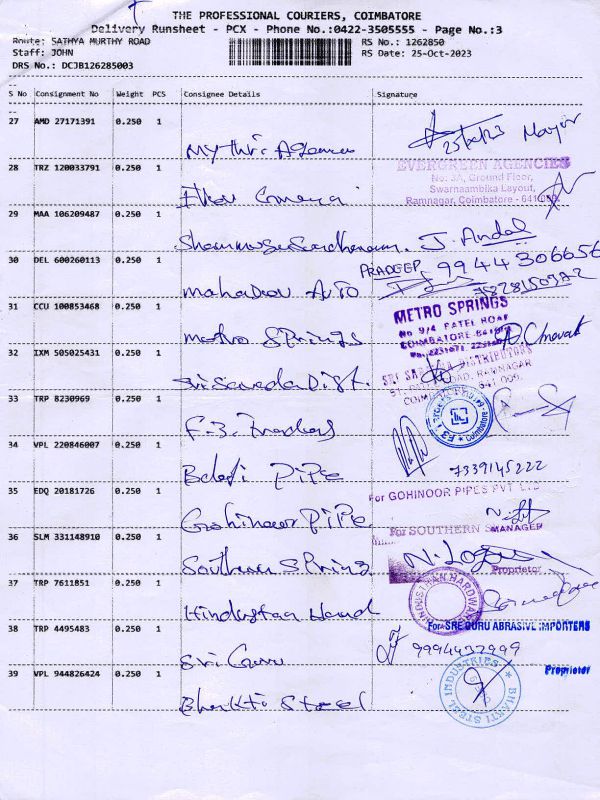 THE PROFESSIONAL COURIERS, COIMBATORE
Delivery Runsheet - PCX - Phone No.:0422-3505555 - Page No.:3
Route: SATHYA MURTHY ROAD
Staff: JOHN
DRS No.: DCJB126285003
RS No.: 1262850
RS Date: 25-Oct-2023
S No Consignment No Weight PCS Consignee Details Signature
27 AMD 27171391 0.250 1
Mythri Agencies
25/10/23
28 TRZ 120033791 0.250 1
EVERGREEN AGENCIES
No: 3A, Ground Floor,
Swarnaambika Layout,
Ramnagar, Coimbatore - 641 009.
29 MAA 106209487 0.250 1
J. Andal
30 DEL 600260113 0.250 1
PRADEEP 9944306656
Mahadev Auto
31 CCU 100853468 0.250 1
METRO SPRINGS
No 9/4 PATEL ROAD
COIMBATORE-641009
Metro Springs
32 IXM 505025431 0.250 1
SRI SARADA DISTRIBUTORS
RAMNAGAR
COIMBATORE - 641 009.
Sri Sarada Dist.
33 TRP 8230969 0.250 1
F.3. Traders
34 VPL 220846007 0.250 1
Balaji PIPE
7339145222
35 EDQ 20181726 0.250 1
For GOHINOOR PIPES PVT LTD
MANAGER
Gohinoor PIPE
36 SLM 331148910 0.250 1
For SOUTHERN
Proprietor
Southern Spring
37 TRP 7611851 0.250 1
HINDUSTAN HARDWARE
Hindustan Hard
38 TRP 4495483 0.250 1
For SRE GURU ABRASIVE IMPORTERS
9994432999
Sri Guru
39 VPL 944826424 0.250 1
Proprietor
BHAKTI STEEL INDUSTRIES
Bhakti Steel